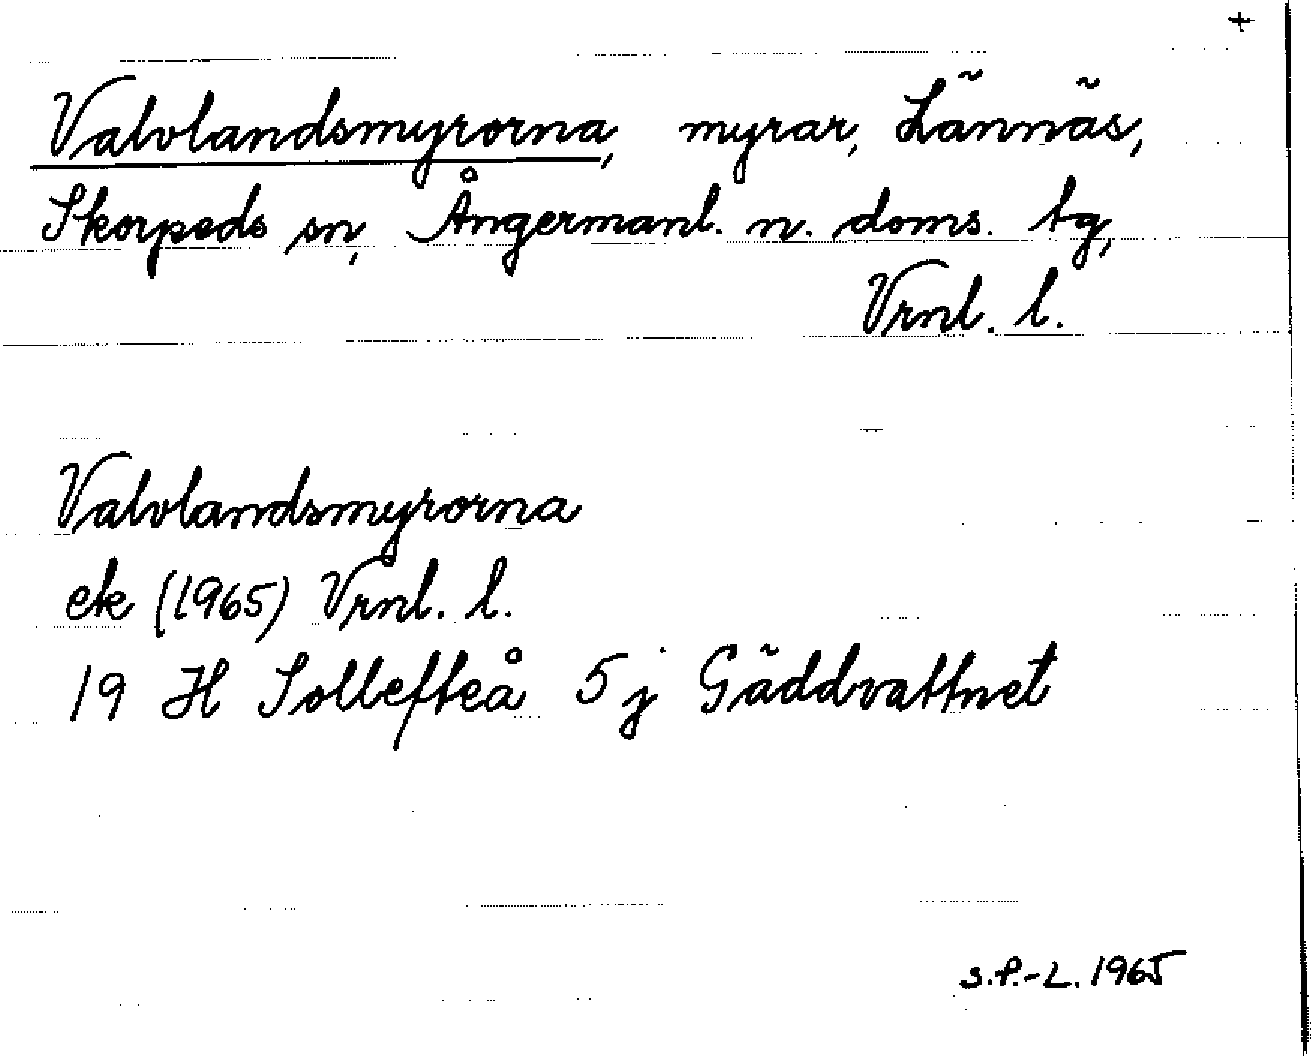 +
Valvlandsmyrorna, myrar, Lännäs,
Skorpeds sn, Ångermanl. n. doms. tg,
Vrnl. l.
Valvlandsmyrorna
ek (1965) Vrnl. l.
19 H Sollefteå 5 j Gäddvattnet
S.P.-L. 1965